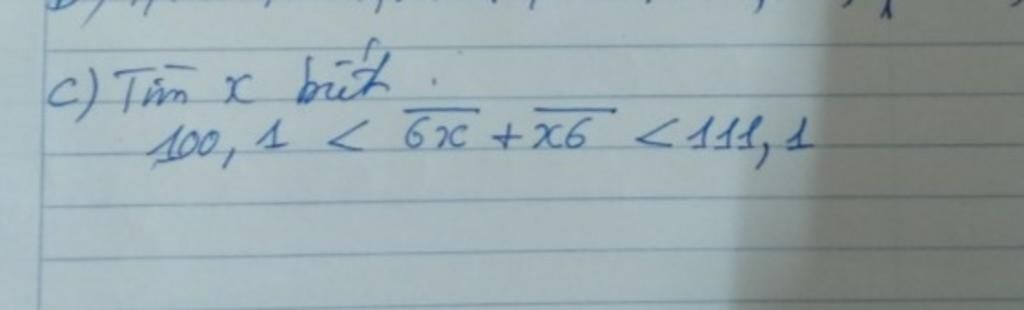 c) Tìm x biết.
100,1 < \overline{6x} + \overline{x6} < 111,1